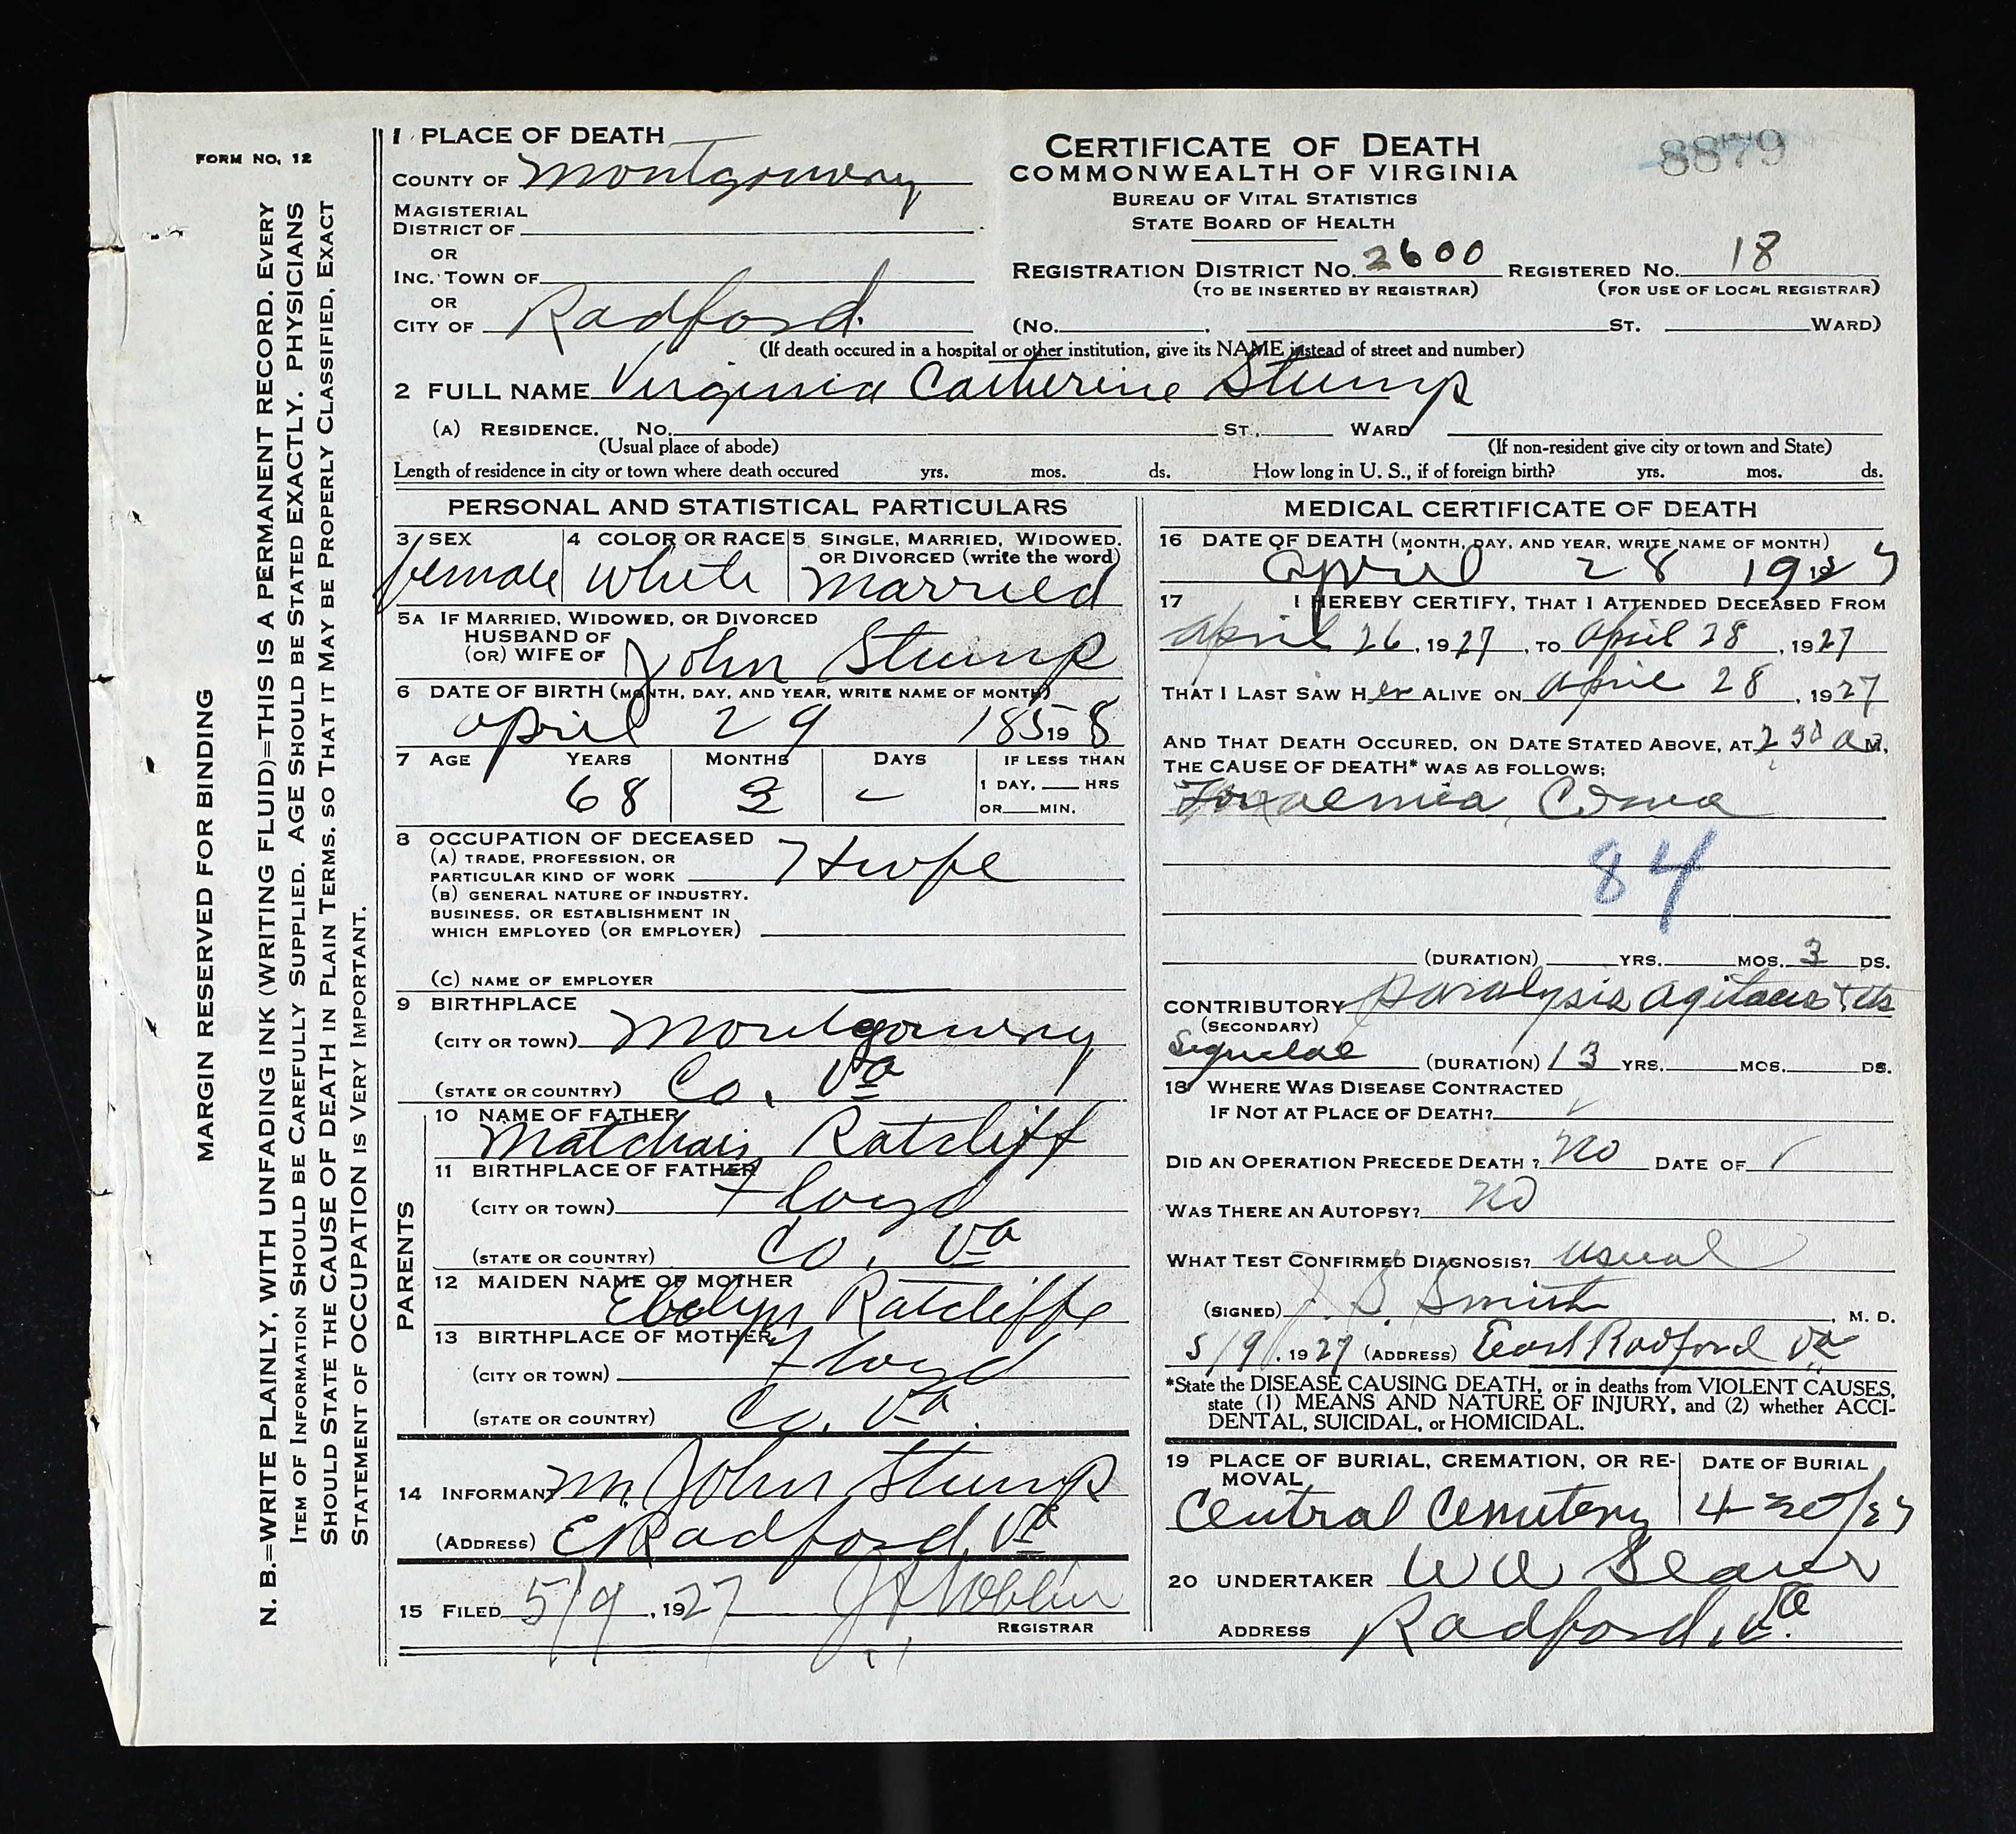 FORM NO. 12
MARGIN RESERVED FOR BINDING
N. B.=WRITE PLAINLY, WITH UNFADING INK (WRITING FLUID)=THIS IS A PERMANENT RECORD. EVERY
ITEM OF INFORMATION SHOULD BE CAREFULLY SUPPLIED. AGE SHOULD BE STATED EXACTLY. PHYSICIANS
SHOULD STATE THE CAUSE OF DEATH IN PLAIN TERMS, SO THAT IT MAY BE PROPERLY CLASSIFIED, EXACT
STATEMENT OF OCCUPATION IS VERY IMPORTANT.
1 PLACE OF DEATH
COUNTY OF Montgomery
MAGISTERIAL
DISTRICT OF
OR
INC. TOWN OF
OR
CITY OF Radford.
CERTIFICATE OF DEATH
COMMONWEALTH OF VIRGINIA
BUREAU OF VITAL STATISTICS
STATE BOARD OF HEALTH
8879
REGISTRATION DISTRICT NO. 2600 REGISTERED NO. 18
(TO BE INSERTED BY REGISTRAR) (FOR USE OF LOCAL REGISTRAR)
(NO. ST. WARD)
(If death occured in a hospital or other institution, give its NAME instead of street and number)
2 FULL NAME Virginia Catherine Stump
(A) RESIDENCE. NO. ST. WARD
(Usual place of abode) (If non-resident give city or town and State)
Length of residence in city or town where death occured yrs. mos. ds. How long in U. S., if of foreign birth? yrs. mos. ds.
PERSONAL AND STATISTICAL PARTICULARS
3 SEX 4 COLOR OR RACE 5 SINGLE, MARRIED, WIDOWED.
OR DIVORCED (write the word)
female white married
5A IF MARRIED, WIDOWED, OR DIVORCED
HUSBAND OF
(OR) WIFE OF John Stump
6 DATE OF BIRTH (MONTH, DAY, AND YEAR, WRITE NAME OF MONTH)
april 29 185198
7 AGE YEARS MONTHS DAYS IF LESS THAN
1 DAY, HRS
OR MIN.
68
8 OCCUPATION OF DECEASED
(A) TRADE, PROFESSION, OR
PARTICULAR KIND OF WORK Hwife
(B) GENERAL NATURE OF INDUSTRY.
BUSINESS, OR ESTABLISHMENT IN
WHICH EMPLOYED (OR EMPLOYER)
(C) NAME OF EMPLOYER
9 BIRTHPLACE
(CITY OR TOWN) Montgomery
(STATE OR COUNTRY) Co. Va
PARENTS
10 NAME OF FATHER
Ratcliff
11 BIRTHPLACE OF FATHER
(CITY OR TOWN) Floyd
(STATE OR COUNTRY) Co. Va
12 MAIDEN NAME OF MOTHER
Ratcliffe
13 BIRTHPLACE OF MOTHER
(CITY OR TOWN) Floyd
(STATE OR COUNTRY) Co. Va.
14 INFORMANT Mr. John Stump
(ADDRESS) E Radford, Va
15 FILED 5/9, 1927
REGISTRAR
MEDICAL CERTIFICATE OF DEATH
16 DATE OF DEATH (MONTH, DAY, AND YEAR, WRITE NAME OF MONTH)
April 28 1927
17 I HEREBY CERTIFY, THAT I ATTENDED DECEASED FROM
april 26, 1927, TO april 28, 1927
THAT I LAST SAW Her ALIVE ON april 28, 1927
AND THAT DEATH OCCURED, ON DATE STATED ABOVE, AT 2 30 a M.
THE CAUSE OF DEATH* WAS AS FOLLOWS:
Toxaemia, Coma
84
(DURATION) YRS. MOS. 3 DS.
CONTRIBUTORY paralysis agitans & its
(SECONDARY)
Sequelae (DURATION) 13 YRS. MOS. DS.
18 WHERE WAS DISEASE CONTRACTED
IF NOT AT PLACE OF DEATH?
DID AN OPERATION PRECEDE DEATH? No DATE OF
WAS THERE AN AUTOPSY? No
WHAT TEST CONFIRMED DIAGNOSIS? usual
(SIGNED) Smith, M. D.
5/9, 1927 (ADDRESS) East Radford Va
*State the DISEASE CAUSING DEATH, or in deaths from VIOLENT CAUSES,
state (1) MEANS AND NATURE OF INJURY, and (2) whether ACCI-
DENTAL, SUICIDAL, or HOMICIDAL.
19 PLACE OF BURIAL, CREMATION, OR RE-
MOVAL DATE OF BURIAL
Central Cemetery
20 UNDERTAKER
ADDRESS Radford, Va.